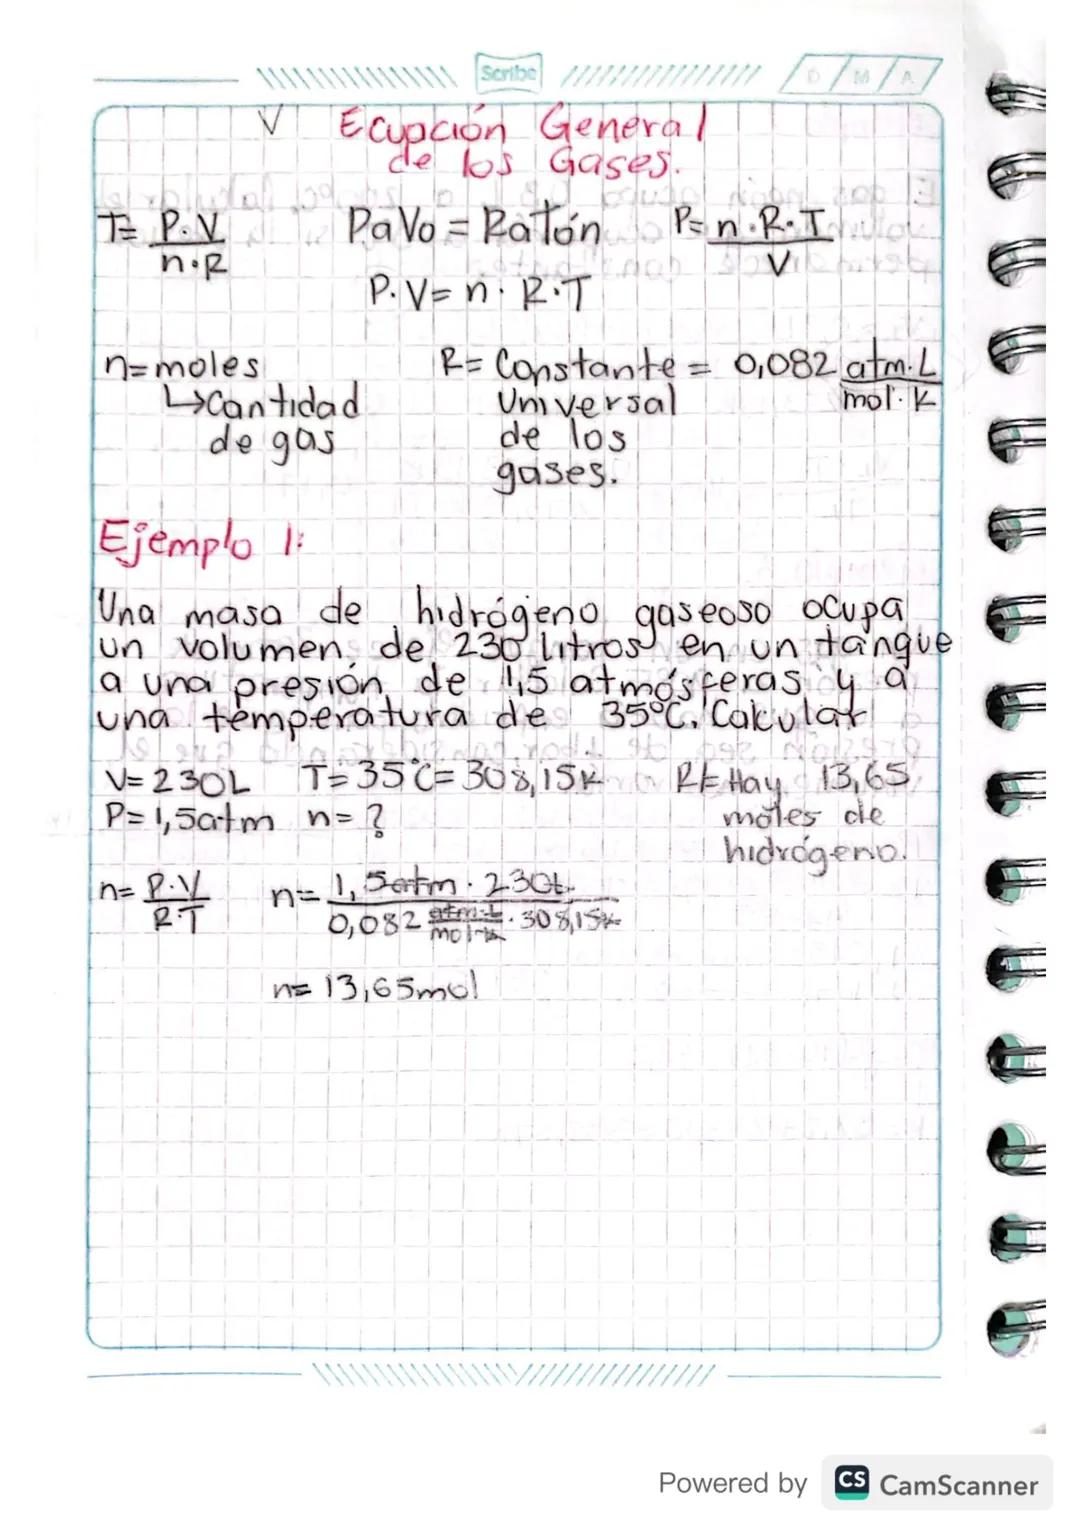 Scribe
D M A
V Ecuación General
de los Gases.
T= P.V / n.R PaVo = Ratón P= n.R.T / V
P.V= n. R.T
n=moles R= Constante = 0,082 atm.L / mol.K
↳Cantidad Universal
de gas de los
gases.
Ejemplo 1:
Una masa de hidrógeno gaseoso ocupa
un volumen de 230 litros en un tanque
a una presión de 1,5 atmósferas y a
una temperatura de 35°C. Calcular
V=230L T=35°C=308,15K R/= Hay 13,65
P=1,5atm n=? moles de
hidrógeno.
n= P.V / R.T n= 1,5atm . 230L / 0,082 atm.L / mol.K . 308,15K
n= 13,65mol
Powered by CS CamScanner